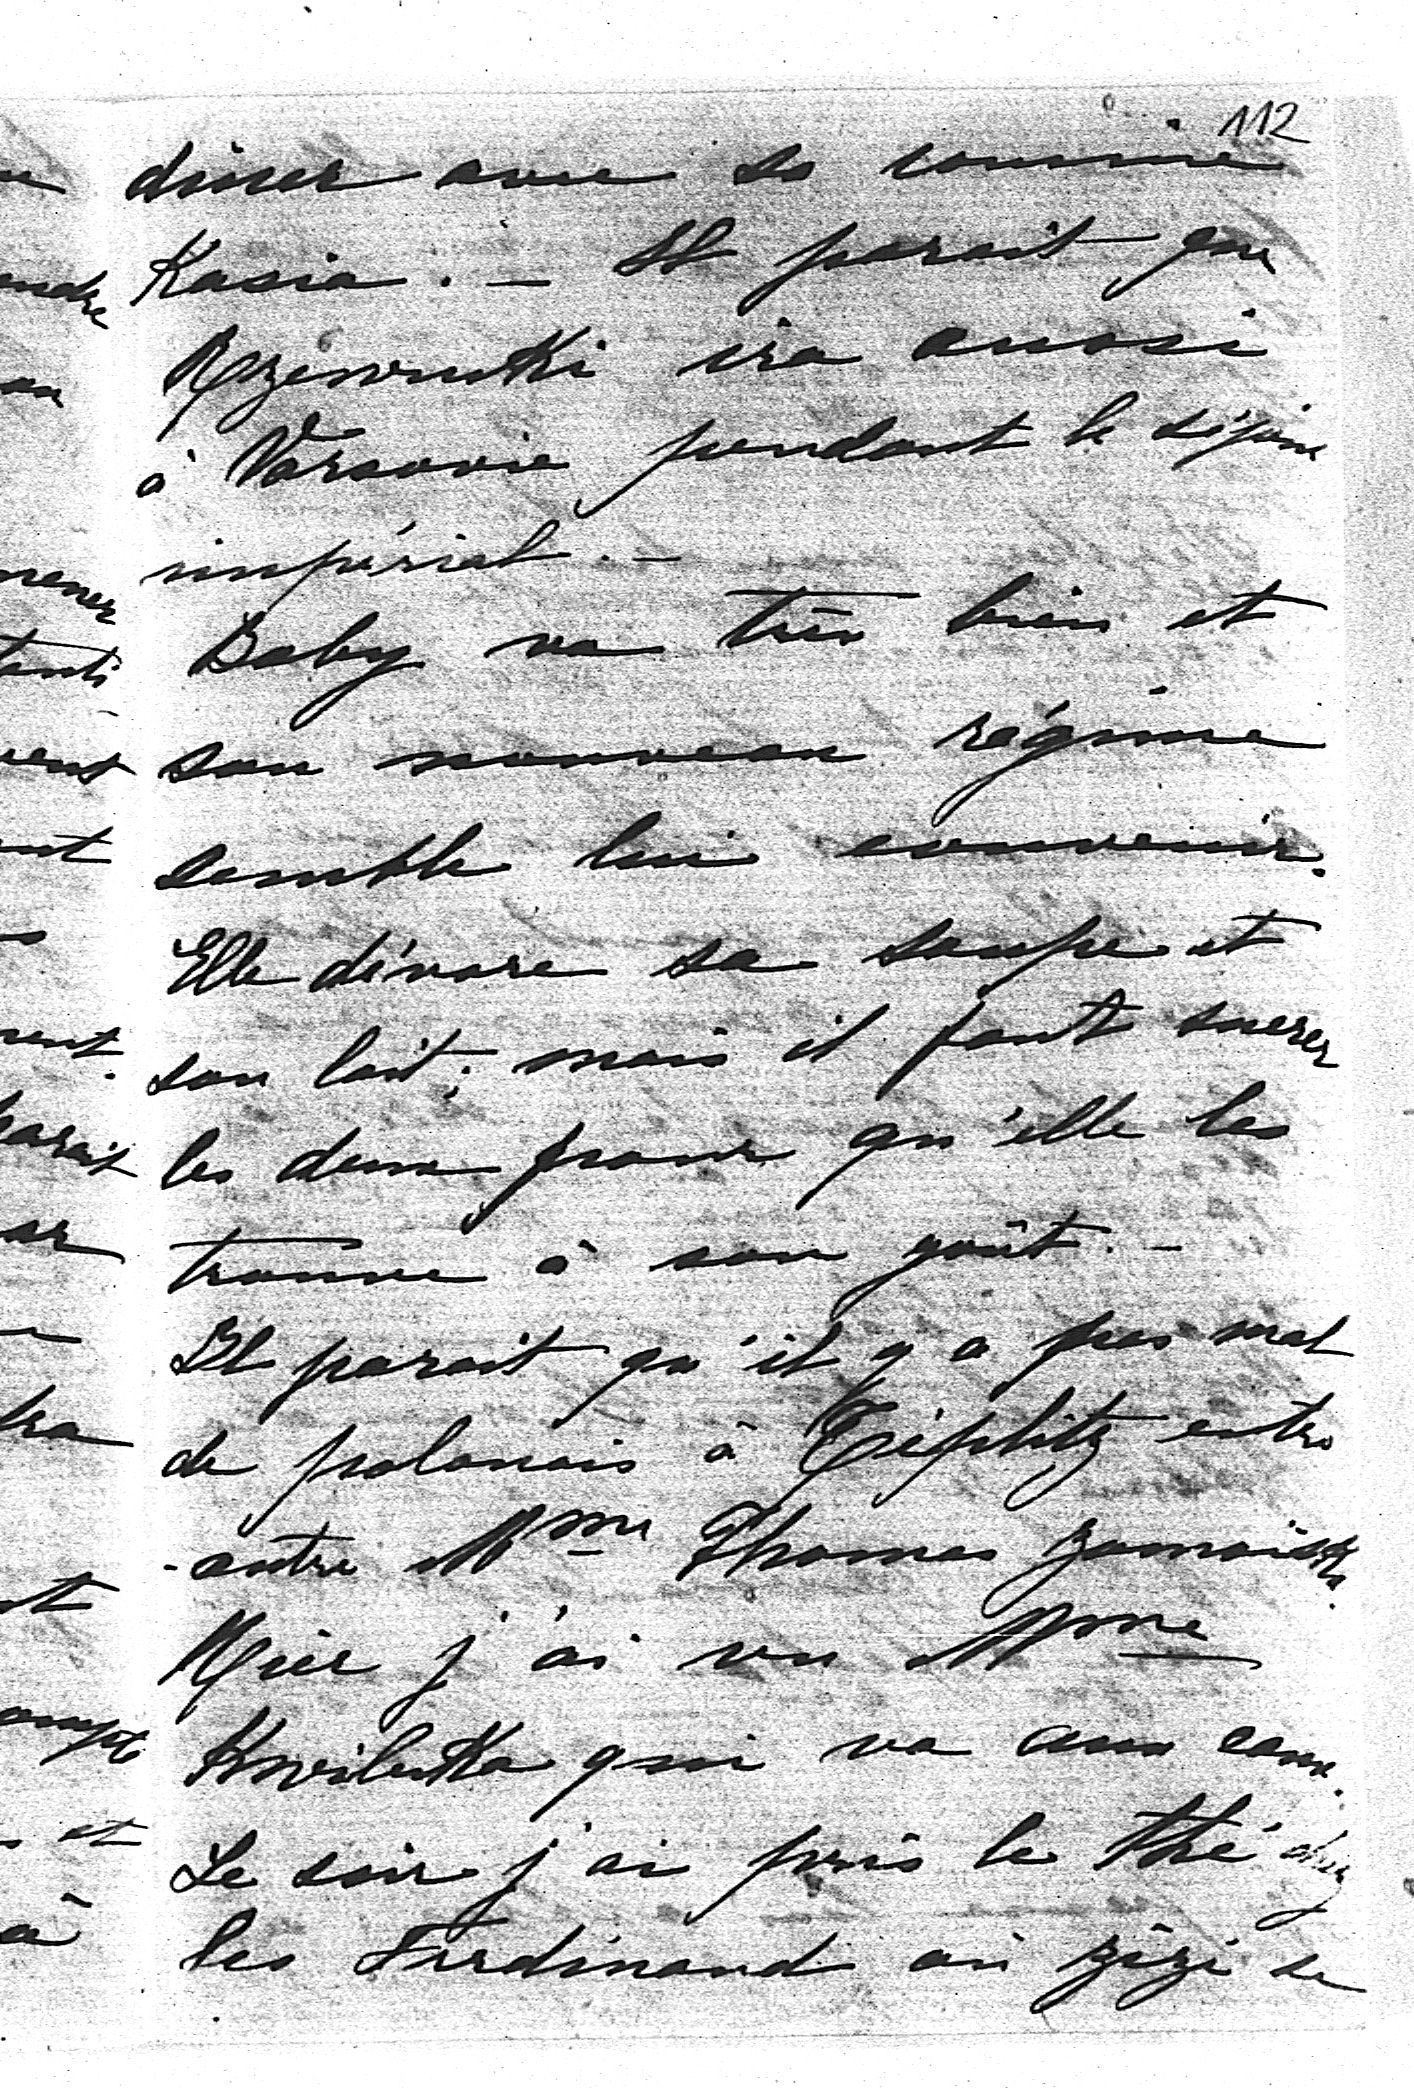 112
diner avec sa cousine
Kasia. – Il parait que
Rzewuski ira aussi
à Varsovie pendant le séjour
impérial. –
Baby va très bien et
son nouveau régime
semble lui convenir.
Elle dévore sa soupe et
son lait; mais il faut sucrer
les deux pour qu'elle les
trouve à son goût. –
Il parait qu'il y a pas mal
de polonais à Tieplitz entre
-autre Mme Thomas Zamoiska.
Hier j'ai vu Mme
Kwilecka qui va aux eaux.
Le soir j'ai pris le thé chez
les Ferdinand où Zizi se